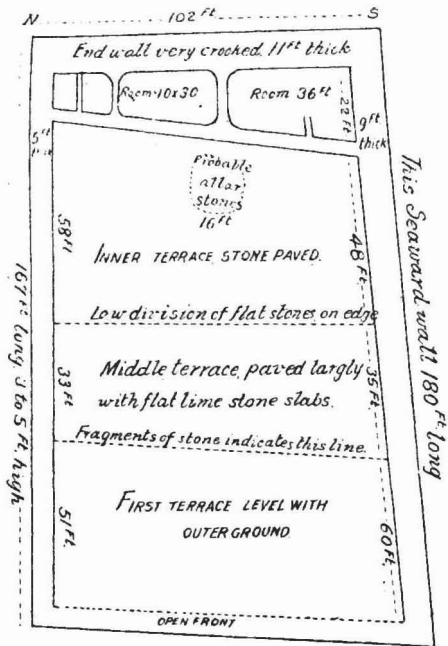 N 102 Ft S
End wall very crooked. 11 Ft thick
Room 10x30
Room 36 Ft
22 Ft
9 Ft
thick
5 Ft
Probable
altar
stones
16 Ft
58 Ft
48 Ft
INNER TERRACE STONE PAVED.
Low division of flat stones on edge
33 Ft
Middle terrace, paved largely
with flat lime stone slabs.
35 Ft
Fragments of stone indicates this line.
51 Ft
FIRST TERRACE LEVEL WITH
OUTER GROUND.
60 Ft
OPEN FRONT
167 Ft long 3 to 5 Ft high
This Seaward wall 180 Ft long